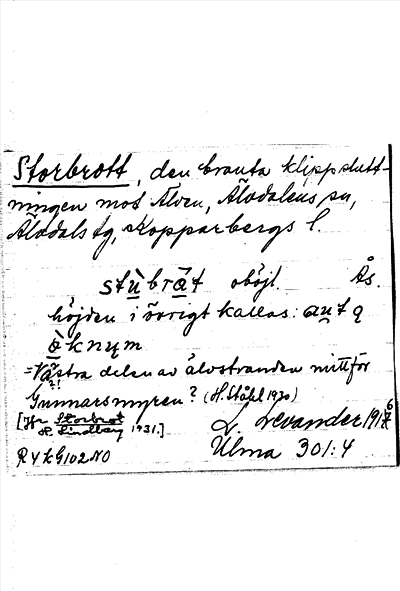 Storbrott, den branta klippslutt-
ningen mot Älven, Älvdalens sn,
Älvdals tg, Kopparbergs l.
stùbràt oböjl. Ås.
höjden i övrigt kallas: aut
òknum
=Västra delen av älvstranden mittför
Gunnarsmyren? (H. Ståhl 1930)
[Hr Storbrot
H. Lindberg 1931.]
L. Levander 1916
Ulma 301:4